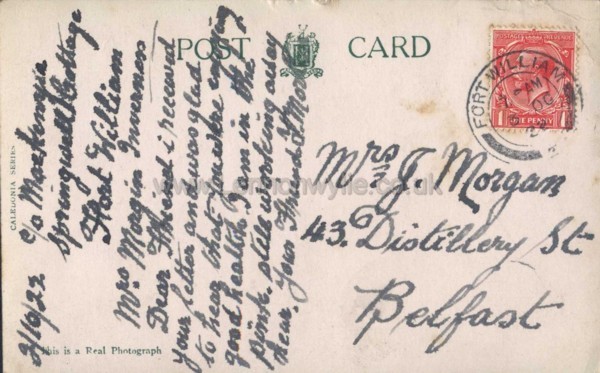 POST CARD
CALEDONIA SERIES
2/10/22
c/o
Springwell Cottage
Fort William
Inverness
Mrs Morgan
Dear Friend i received
your letter and was glad
to hear that you are enjoying
good health I am in the
pink. still working away
here. Yours Friend
This is a Real Photograph
POSTAGE REVENUE
ONE PENNY
FORT WILLIAM
Mrs J. Morgan
43. Distillery St
Belfast